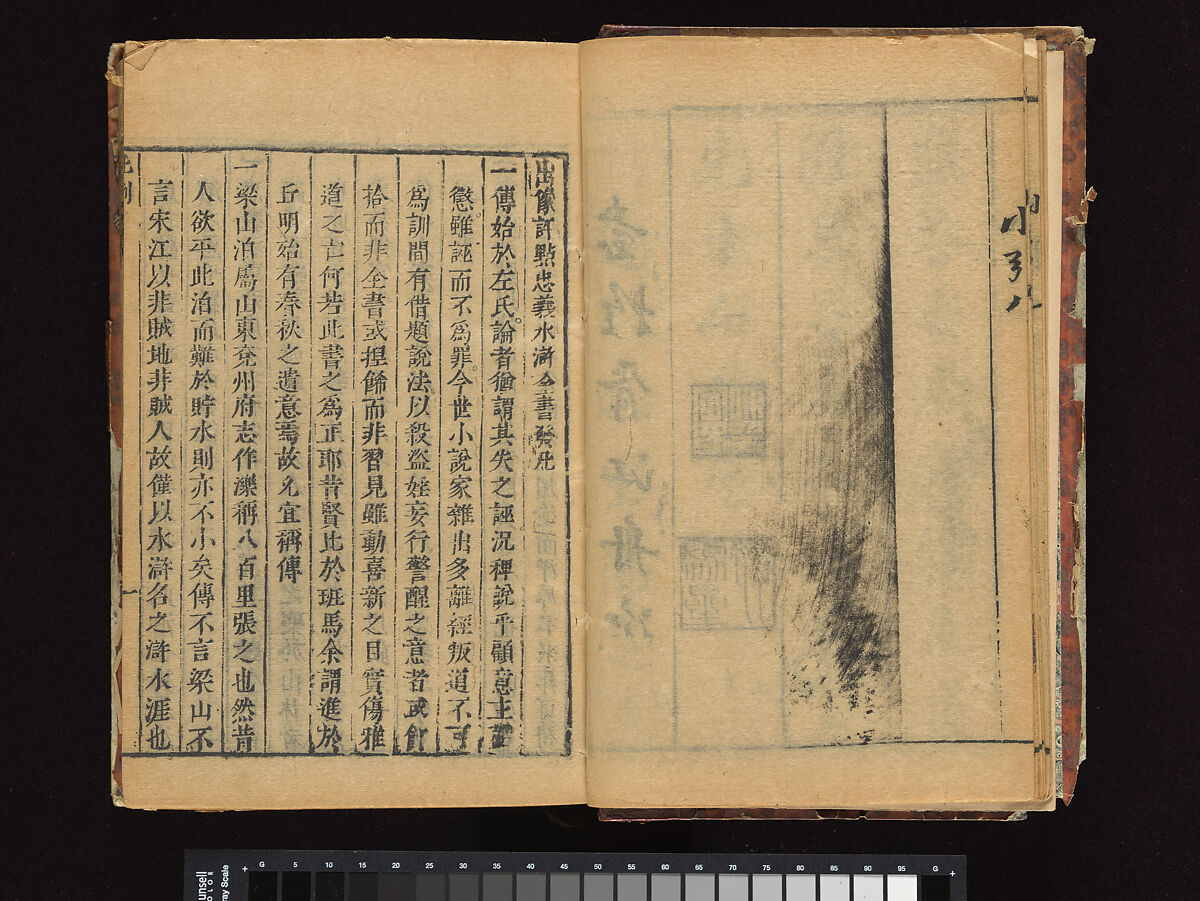 小引 八
出像評點忠義水滸全書發凡
一傳始於左氏論者猶謂其失之誣況稗說乎顧意主勸
懲雖誣而不爲罪今世小說家雜出多離經叛道不可
爲訓間有借題說法以殺盜婬妄行警醒之意者或飣
拾而非全書或捏飾而非習見雖動喜新之目實傷雅
道之亡何若此書之爲正耶昔賢比於班馬余謂進於
丘明殆有春秋之遺意焉故允宜稱傳
一梁山泊屬山東兗州府志作濼稱八百里張之也然昔
人欲平此泊而難於貯水則亦不小矣傳不言梁山不
言宋江以非賊地非賊人故僅以水滸名之滸水涯也
G 5 10 15 20 25 30 35 40 45 50 55 60 65 70 75 80 85 90 95 G